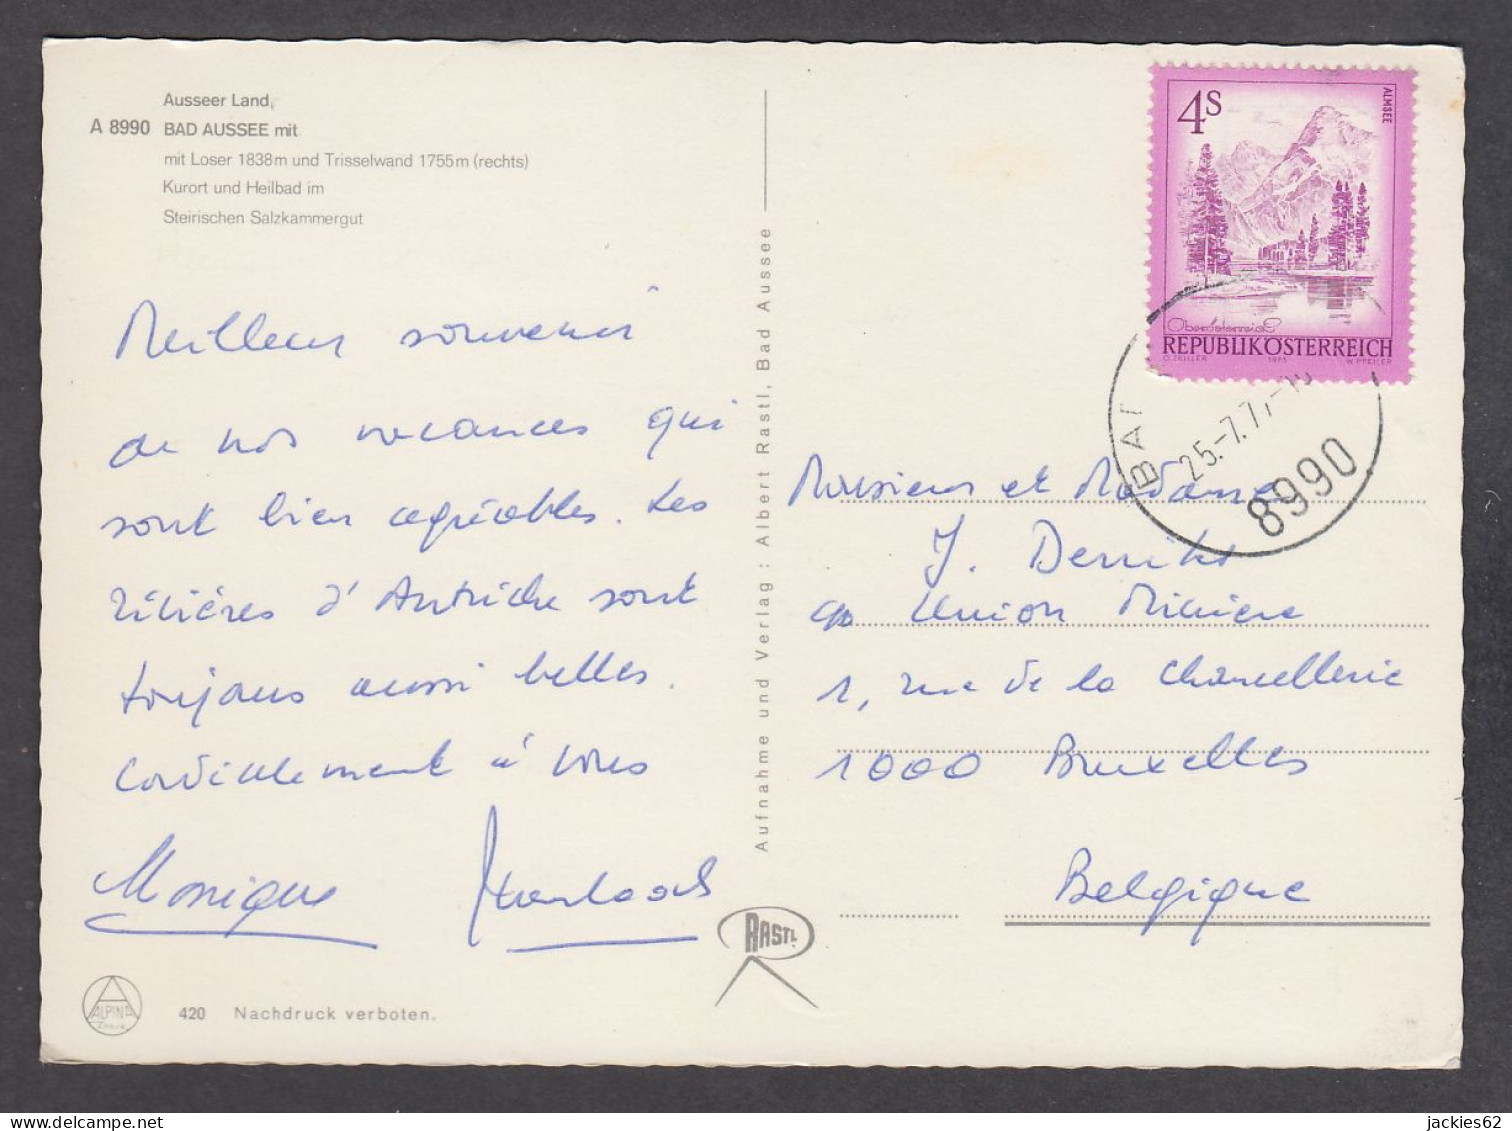 Ausseer Land,
A 8990 BAD AUSSEE mit
mit Loser 1838m und Trisselwand 1755m (rechts)
Kurort und Heilbad im
Steirischen Salzkammergut
Meilleur souvenir
de nos vacances qui
sont bien agréables. Les
rivières d'Autriche sont
toujours aussi belles.
Cordialement à vous
Monique
420 Nachdruck verboten.
ALPINA
Aufnahme und Verlag : Albert Rastl, Bad Aussee
RASTL
4S
ALMSEE
Oberösterreich
REPUBLIK ÖSTERREICH
O. ZEILLER 1973 W. PFEILER
BAD
25.-7.77.-18
8990
Monsieur et Madame
J. Derriks
c/o Union Minière
1, rue de la Chancellerie
1000 Bruxelles
Belgique
jackies62